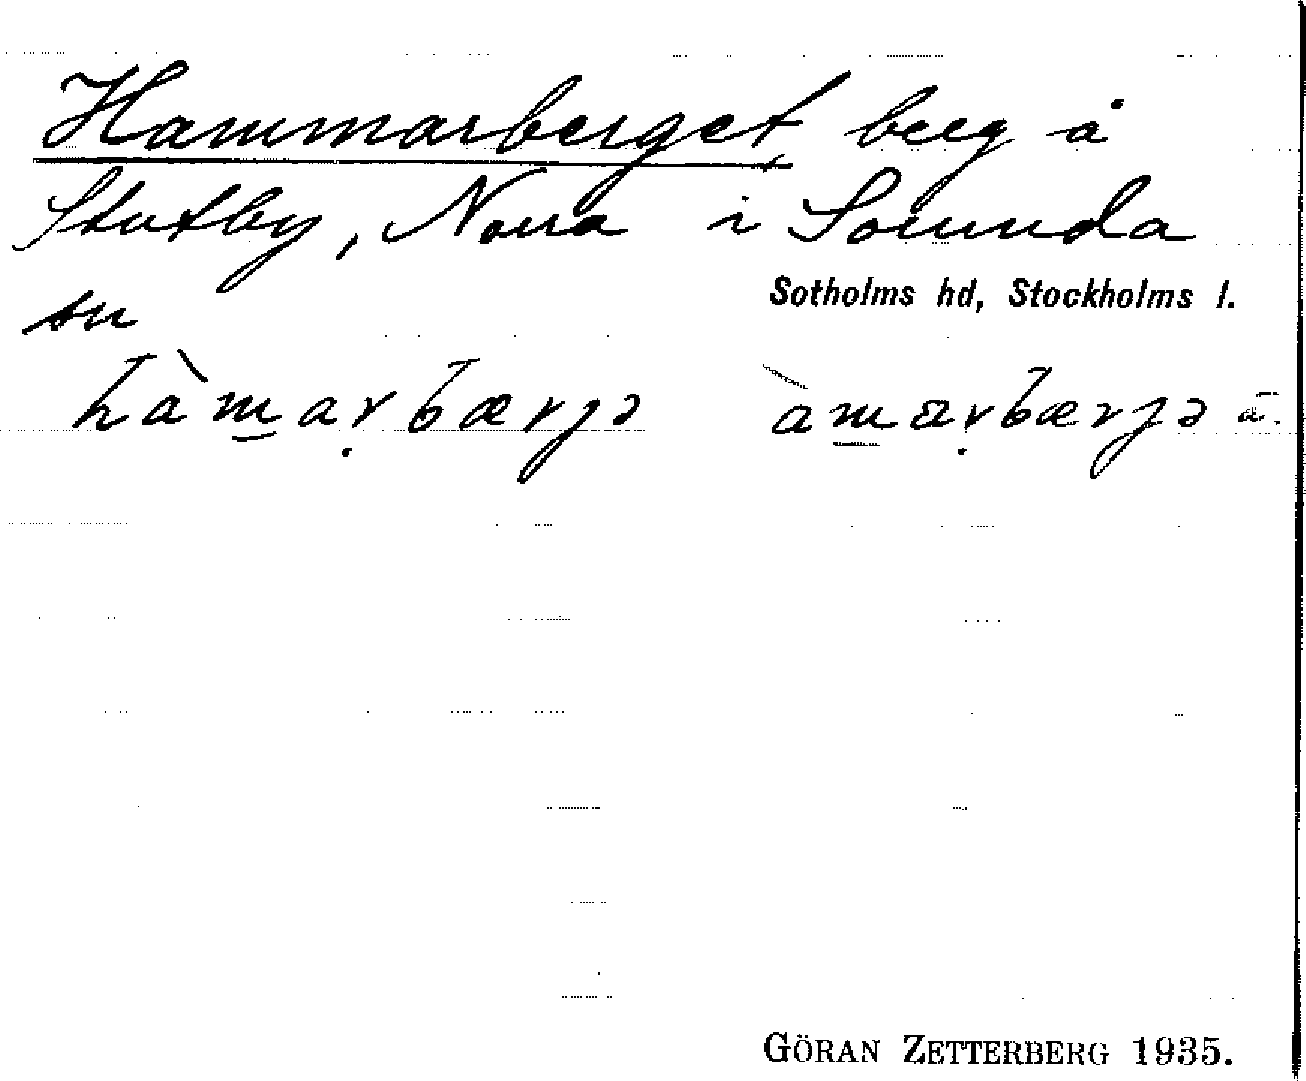 Hammarberget, berg å
Stutby, Norra i Sorunda
sn
Sotholms hd, Stockholms l.
hàmarbærjə àmarbærjə ä.
GÖRAN ZETTERBERG 1935.